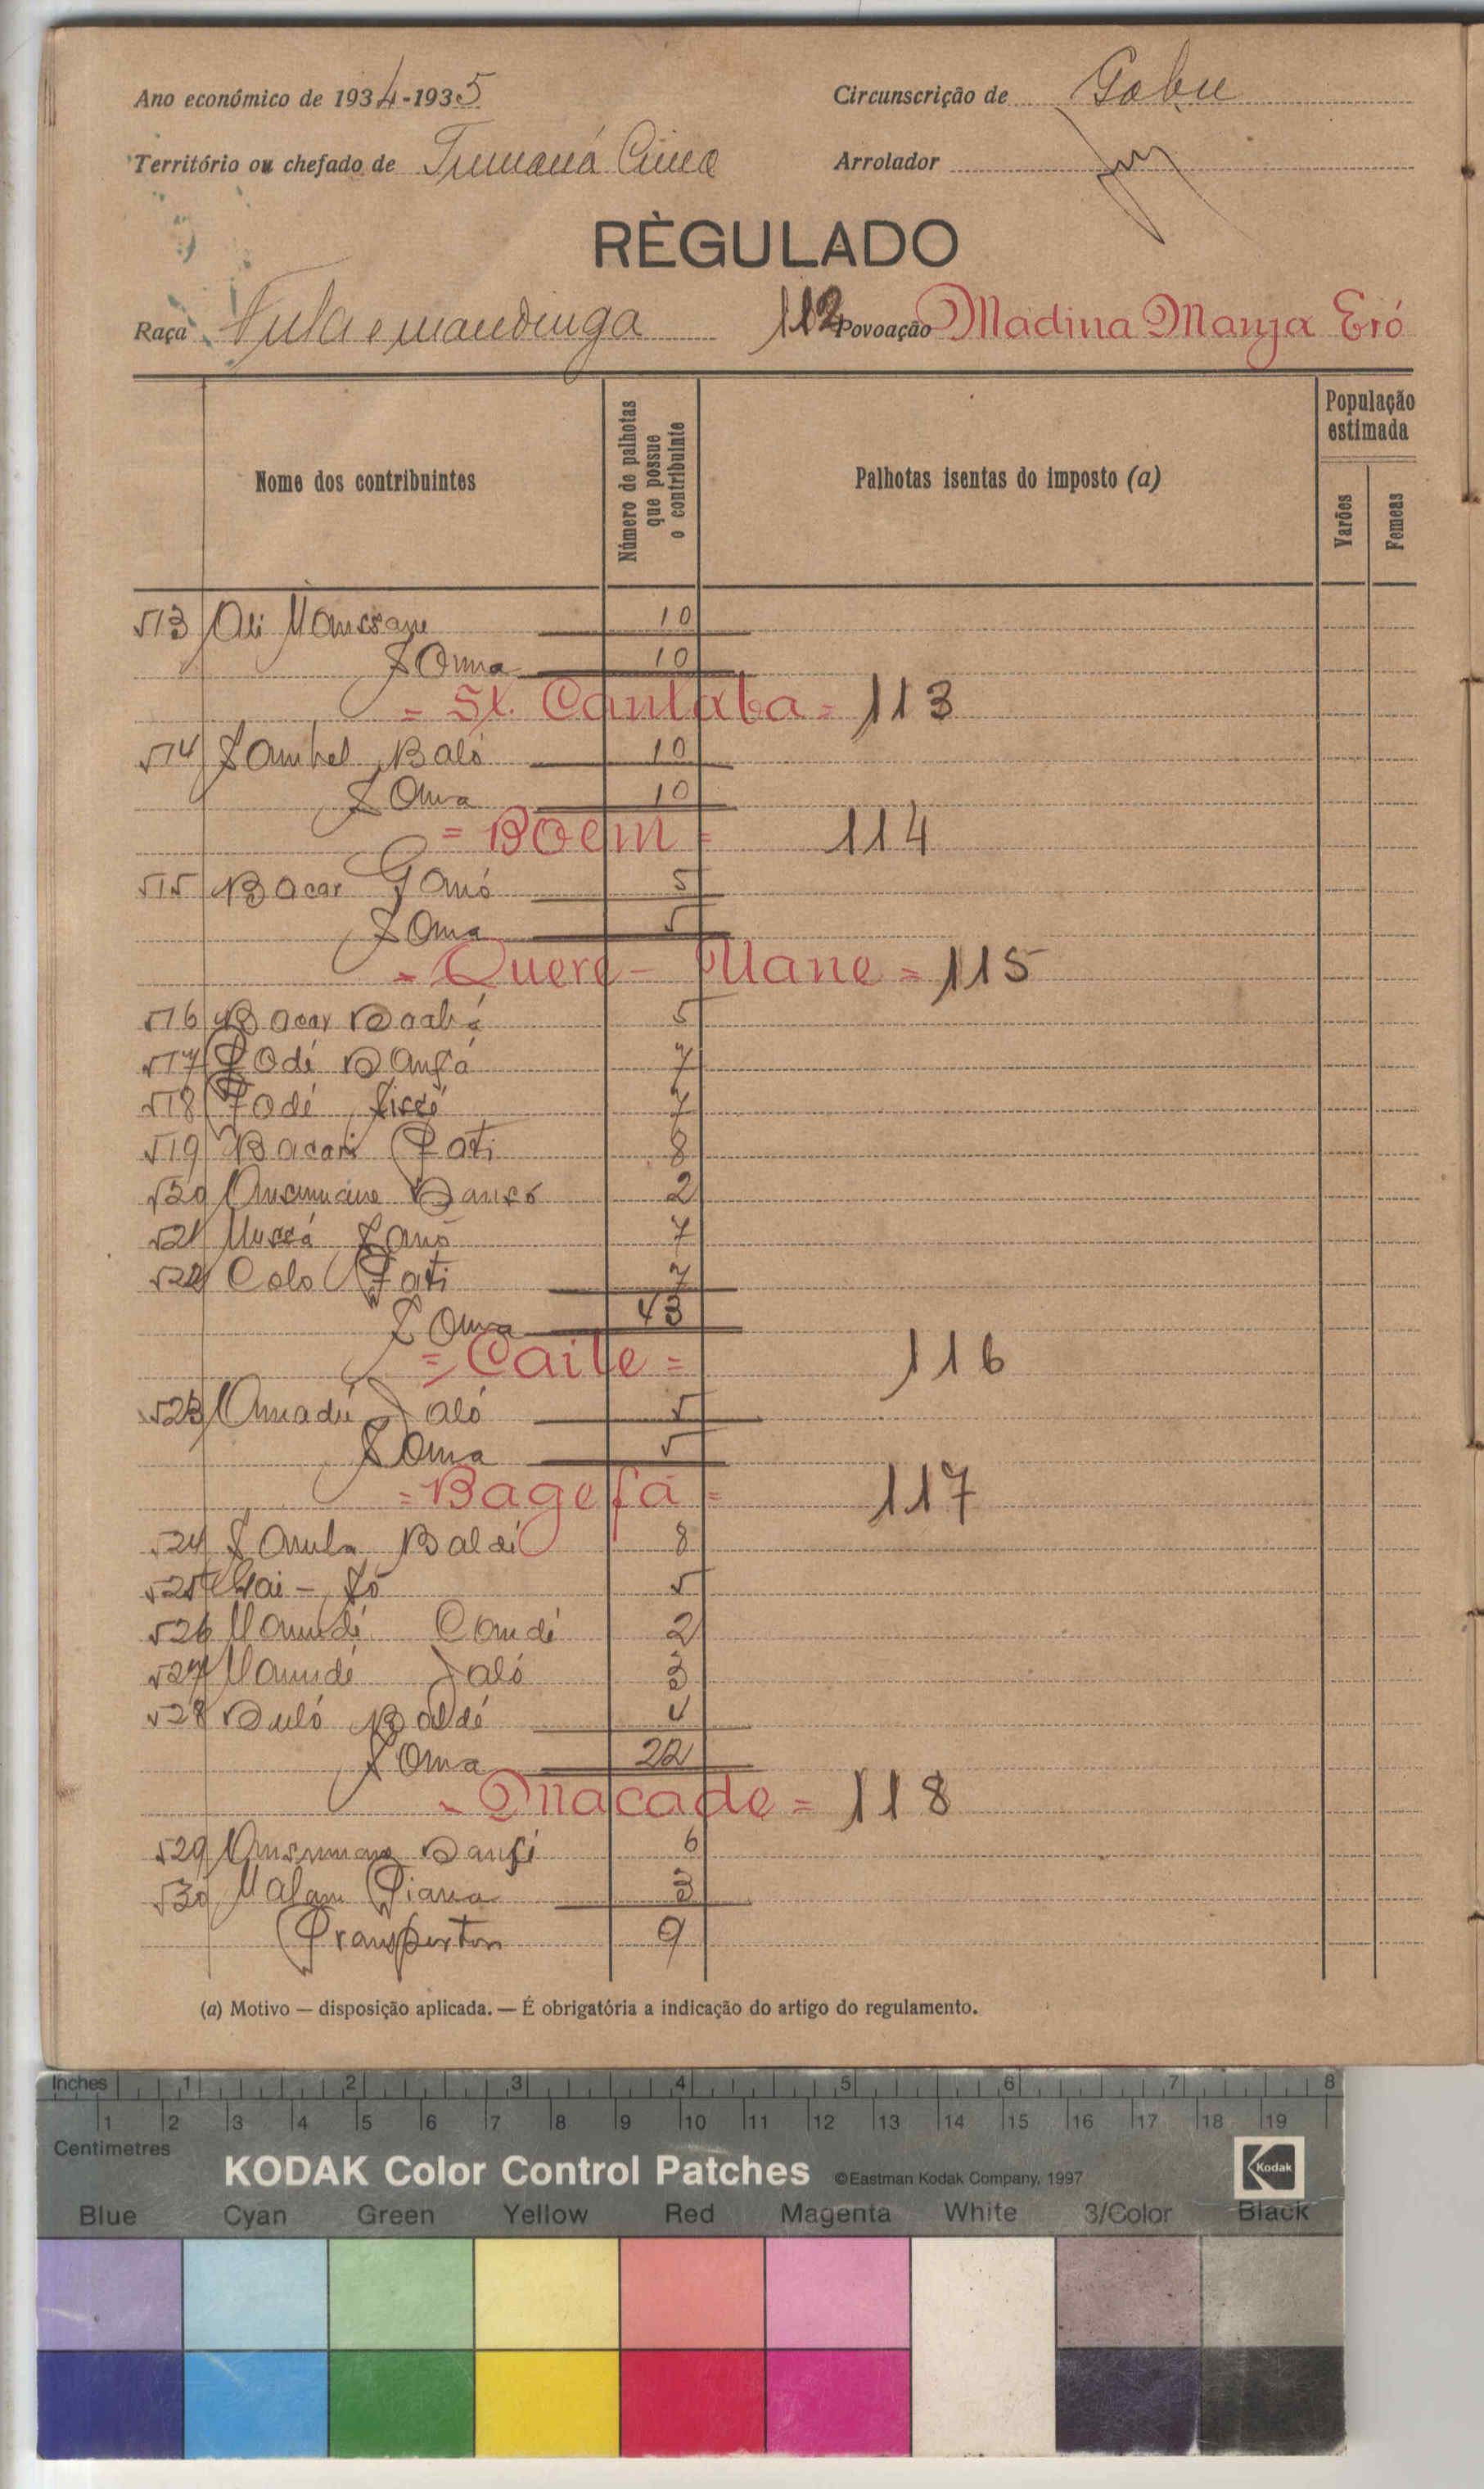 Ano económico de 1934-1935
Circunscrição de Gabu
Território ou chefado de Tumaná Cima
Arrolador
RÈGULADO
Raça Fula e mandinga
112 Povoação Madina Manja Eió
Nome dos contribuintes
Número de palhotas que possue o contribuinte
Palhotas isentas do imposto (a)
População estimada
Varões
Femeas
513 Ali Manssane 10
Soma 10
= St. Cantaba = 113
514 Sambel Baló 10
Soma 10
= Boem = 114
515 Bacar Ganó 5
Soma 5
= Queré - Mane = 115
516 Bacar Dabá 5
517 Fodé Danfá 7
518 Fodé Sissé 7
519 Bacari Fati 8
520 Ansumane Dansó 2
521 Mussá Sanó 7
522 Colo Fati 7
Soma 43
= Caite = 116
523 Amadú Jaló 5
Soma 5
= Bagefá = 117
524 Samba Baldé 8
525 Gai - Só 5
526 Mamudé Candé 2
527 Mamudé Jaló 3
528 Duló Baldé 4
Soma 22
= Macade = 118
529 Ansumane Danfé 6
530 Malam 3
Transportar 9
(a) Motivo — disposição aplicada. — É obrigatória a indicação do artigo do regulamento.
Inches 1 2 3 4 5 6 7 8
1 2 3 4 5 6 7 8 9 10 11 12 13 14 15 16 17 18 19
Centimetres
KODAK Color Control Patches ©Eastman Kodak Company, 1997 Kodak
Blue Cyan Green Yellow Red Magenta White 3/Color Black